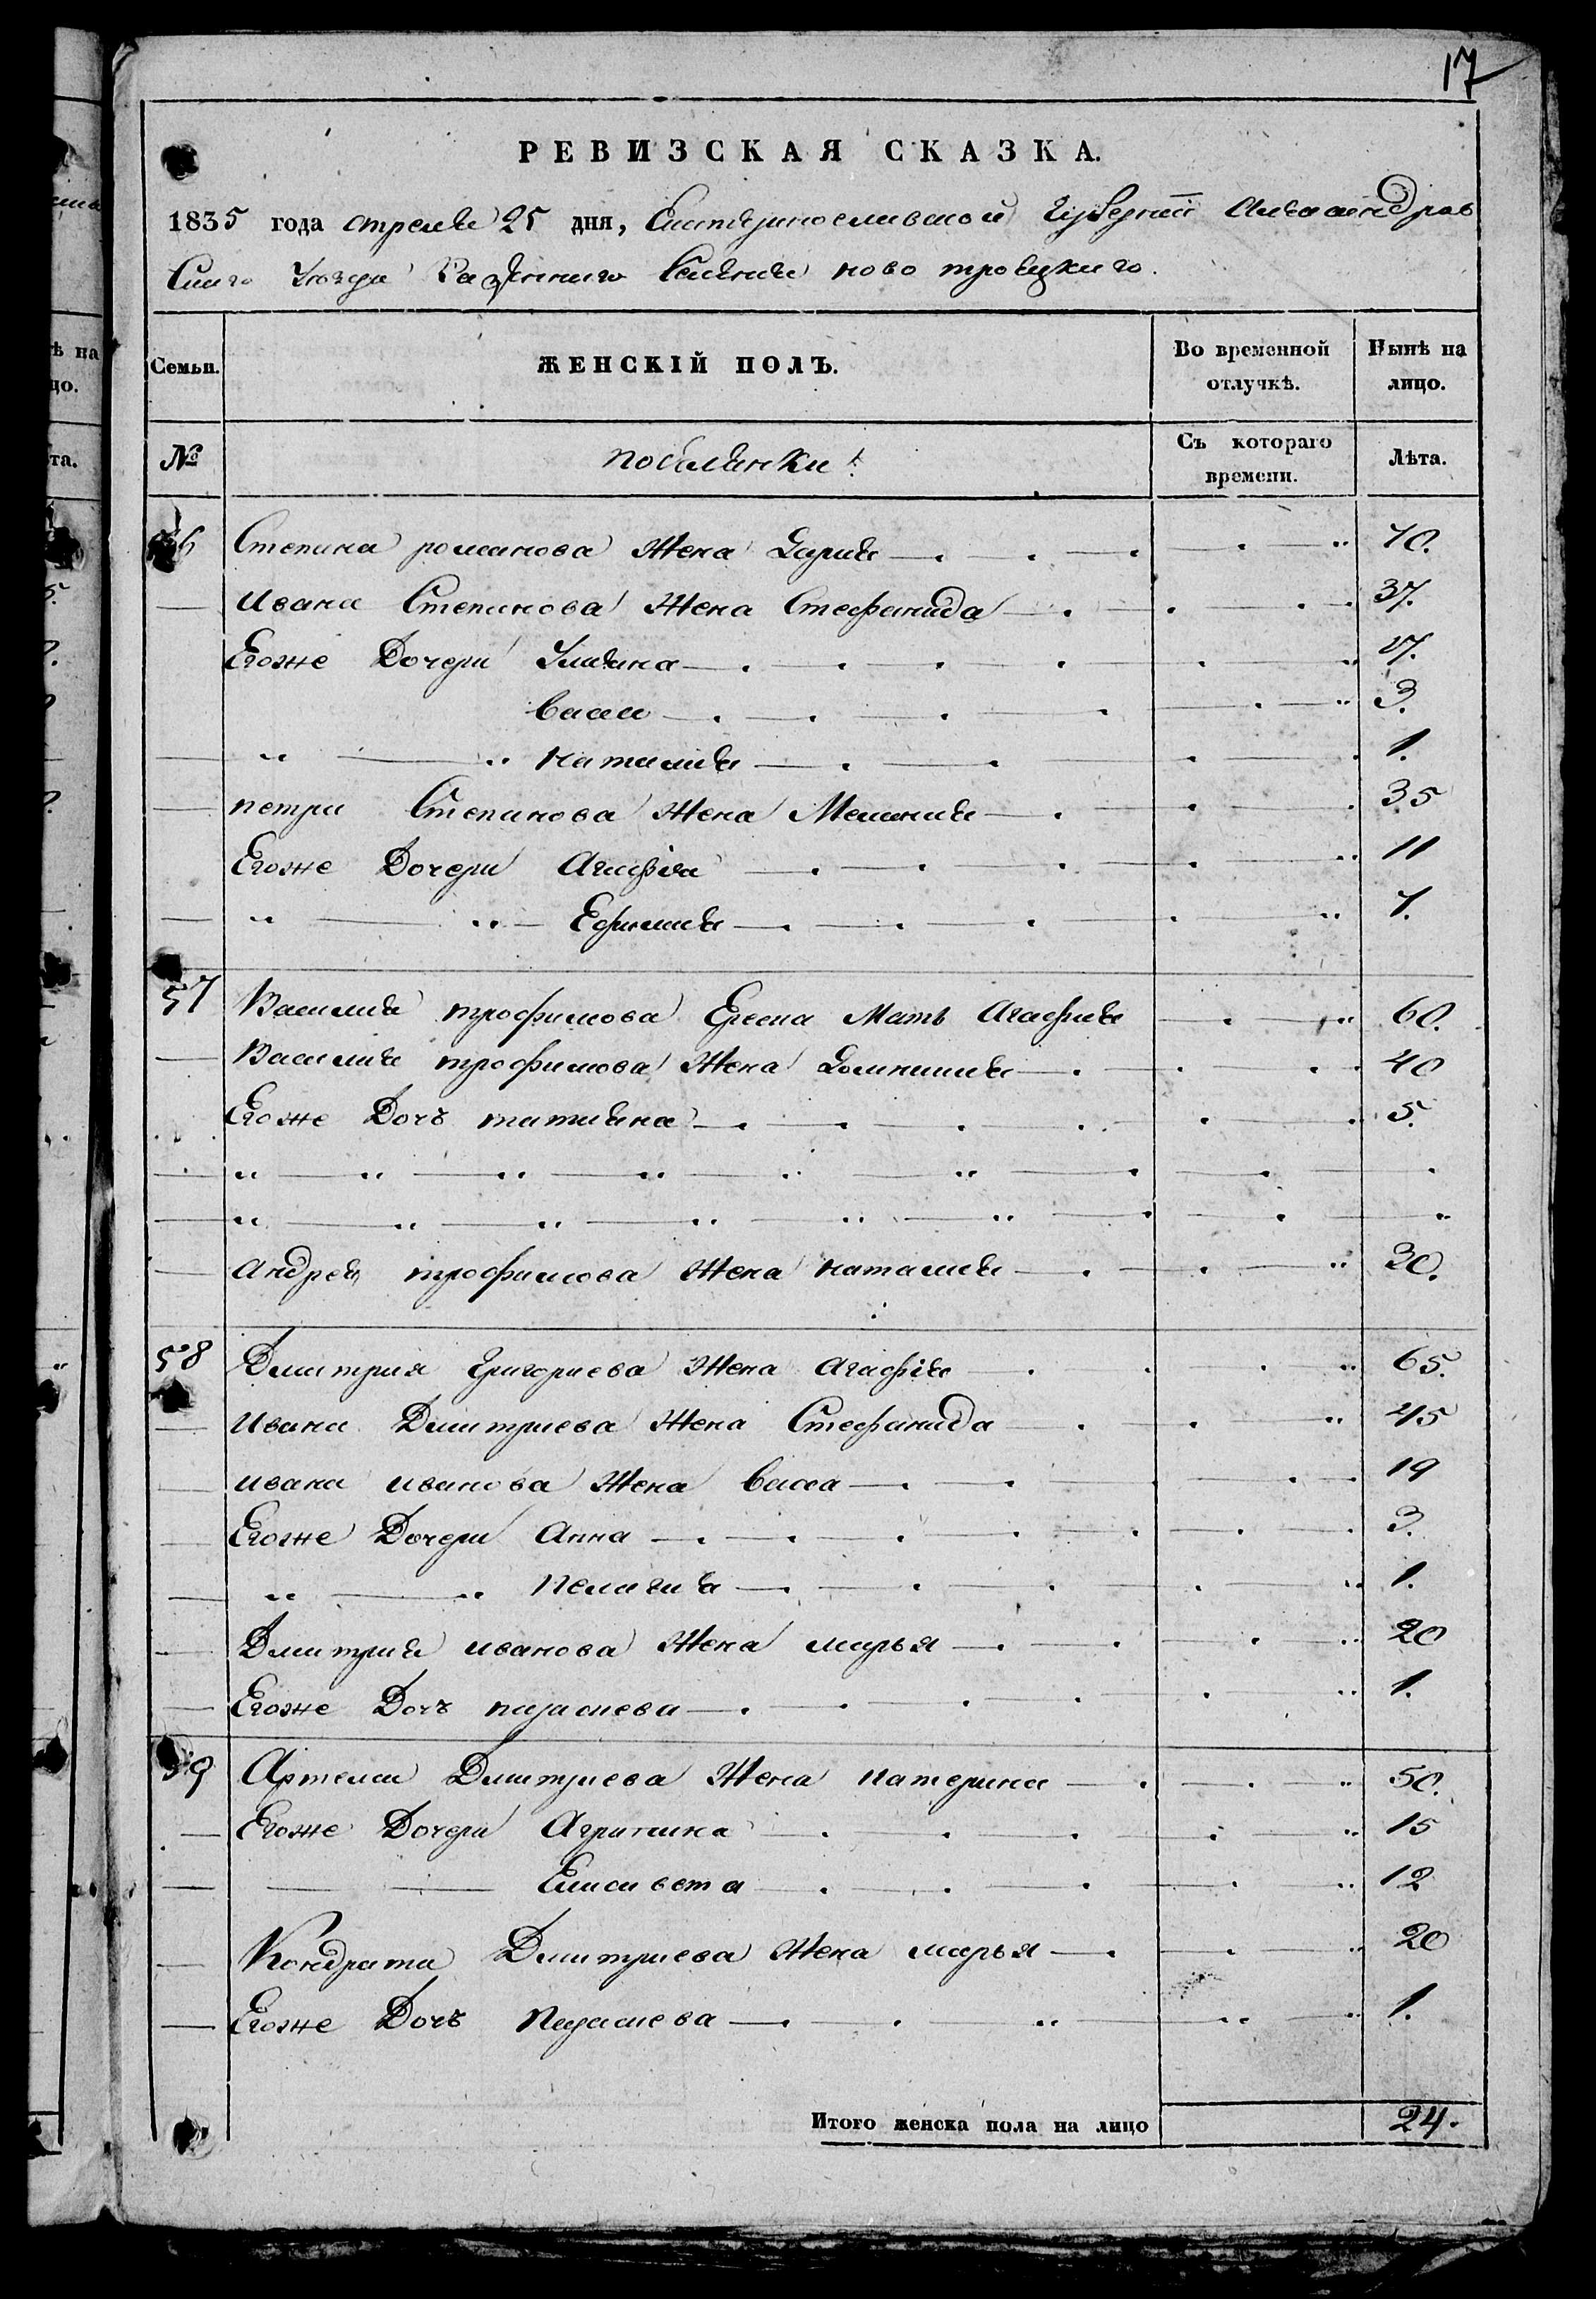 17
РЕВИЗСКАЯ СКАЗКА.
1835 года апреля 25 дня, Екатеринославской Губернии Александров
скаго Уезда Казеннаго Селения ново троецкаго.
Семьи. ЖЕНСКІЙ ПОЛЪ. Во временной отлучкѣ. Нынѣ на лицо.
№ поселянки Съ котораго времени. Лѣта.
56 Степана романова Жена Дария 70.
Ивана Степанова Жена Стефанида 37.
Егоже Дочери Улияна
васса 3.
наталия 1.
петра Степанова Жена Мелания 35
Егоже Дочери Агафія 11
Ефимия 7.
57 Василия трофимова Мать Агафия 60.
Василия трофимова Жена Домникия 40
Егоже Дочь татияна 5.
Андрея трофимова Жена наталия 30.
58 Дмитрия Григориева Жена Агафія 65.
Ивана Дмитриева Жена Стефанида 45
ивана иванова Жена васса 19
Егоже Дочери Анна 3.
Пелагия 1.
Дмитрия иванова Жена марья 20
Егоже Дочь параскева 1.
59 Артема Дмитриева Жена катерина 50.
Егоже Дочери Агрипина 15
Елисавета 12
Кондрата Дмитриева Жена марья 20
Егоже Дочь Параскева 1.
Итого женска пола на лицо 24.